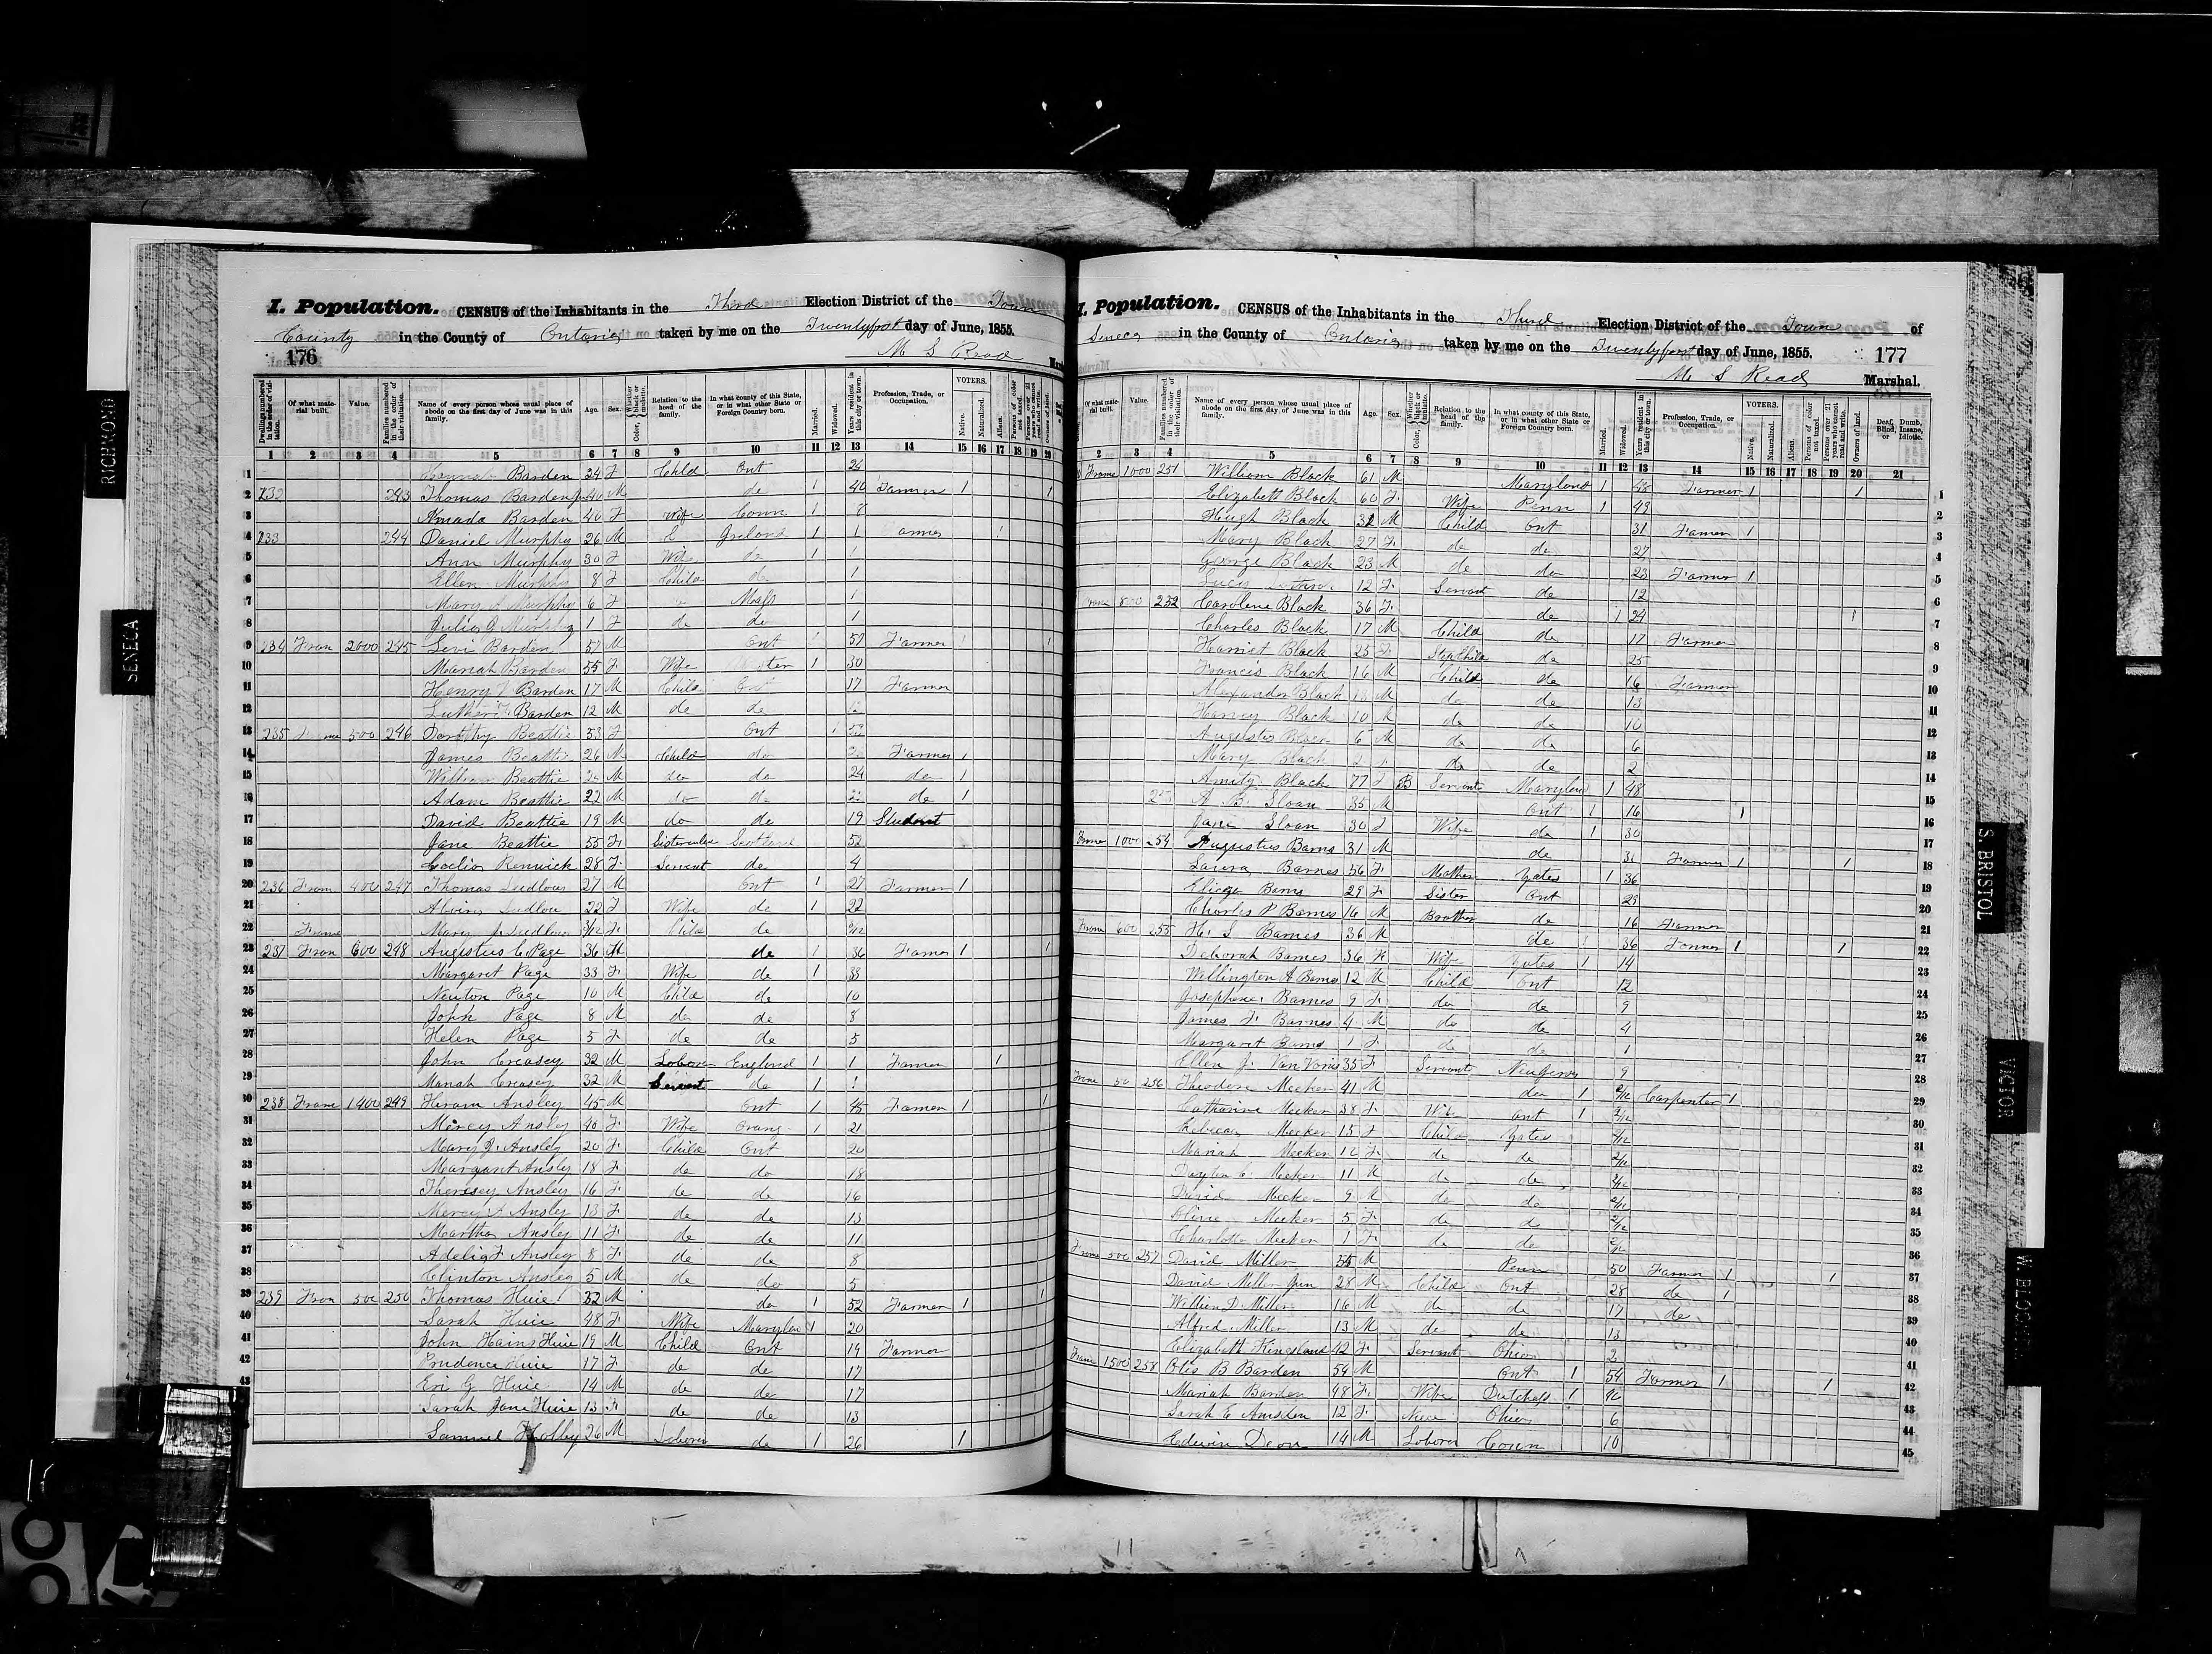 RICHMOND
SENECA
S. BRISTOL
VICTOR
W. BLOOM
I. Population. CENSUS of the Inhabitants in the Third Election District of the Town
County in the County of Ontario taken by me on the Twentyfirst day of June, 1855.
176 M S Read
Dwellings numbered in the order of visitation. Of what material built. Value. Families numbered in the order of their visitation. Name of every person whose usual place of abode on the first day of June was in this family. Age. Sex. Color, Whether black or mulatto. Relation to the head of the family. In what county of this State, or in what other State or Foreign Country born. Married. Widowed. Years resident in this city or town. Profession, Trade, or Occupation. VOTERS. Native. Naturalized. Aliens. Persons of color not taxed. Persons over 21 years who cannot read and write. Owners of land.
1 2 3 4 5 6 7 8 9 10 11 12 13 14 15 16 17 18 19 20
1 Barden 24 F Child Ont 24
2 232 243 Thomas Barden Jn 40 M do 1 40 Farmer 1 1
3 Amada Barden 40 F Wife Conn 1 8
4 233 244 Daniel Murphy 26 M Ireland 1 1
5 Ann Murphy 30 F Wife do 1 1
6 Ellen Murphy 8 F Child do 1
7 Mary A Murphy 6 F Mass 1
8 Julia Murphy 1 F do do 1
9 234 Fram 2000 245 Levi Barden 57 M Ont 1 57 Farmer 1 1
10 Mariah Barden 55 F Wife 1 30
11 Henry Barden 17 M Child Ont 17 Farmer
12 Luther Barden 12 M do do 12
13 235 500 246 Dorothy Beattie 53 F Ont 1 53
14 James Beattie 26 M Child do 26 Farmer 1
15 William Beattie 24 M do do 24 do 1
16 Adam Beattie 22 M do do 22 do 1
17 David Beattie 19 M do do 19 Student
18 Jane Beattie 55 F Sister Scotland 52
19 Coelia Renwick 28 F Servant do 4
20 236 Fram 400 247 Thomas Ludlow 27 M Ont 1 27 Farmer 1
21 Ludlow 22 F Wife do 1 22
22 Frame Mary J Ludlow F Child do
23 237 Fram 600 248 Augustus C Page 36 M do 1 36 Farmer 1 1
24 Margaret Page 33 F Wife do 1 33
25 Newton Page 10 M Child do 10
26 John Page 8 M do do 8
27 Helen Page 5 F do do 5
28 John Creasey 32 M Laborer England 1 1 Farmer 1
29 Mariah Creasey 32 M Servant do 1 1
30 238 Fram 1400 249 Hiram Ansley 45 M Ont 1 45 Farmer 1 1
31 Mercy Ansley 40 F Wife Orang 1 21
32 Mary J. Ansley 20 F Child Ont 20
33 Margaret Ansley 18 F do do 18
34 Theresey Ansley 16 F do do 16
35 Mercy Ansley 13 F do do 13
36 Martha Ansley 11 F do do 11
37 Adelia F Ansley 8 F do do 8
38 Clinton Ansley 5 M do do 5
39 239 Fram 500 250 Thomas Huie 52 M do 1 52 Farmer 1 1
40 Sarah Huie 48 F Wife Marylan 1 20
41 John Hains Huie 19 M Child Ont 19 Farmer
42 Prudence Huie 17 F do do 17
43 Eri G Huie 14 M do do 17
Sarah Jane Huie 13 F do do 13
Samuel Holby 26 M Laborer do 1 26 1
I. Population. CENSUS of the Inhabitants in the Third Election District of the Town of
Seneca in the County of Ontario taken by me on the Twentyfirst day of June, 1855. 177
M S Read Marshal.
Of what material built. Value. Families numbered in the order of their visitation. Name of every person whose usual place of abode on the first day of June was in this family. Age. Sex. Color, Whether black or mulatto. Relation to the head of the family. In what county of this State, or in what other State or Foreign Country born. Married. Widowed. Years resident in this city or town. Profession, Trade, or Occupation. VOTERS. Native. Naturalized. Aliens. Persons of color not taxed. Persons over 21 years who cannot read and write. Owners of land. Deaf, Dumb, Blind, Insane, or Idiotic.
2 3 4 5 6 7 8 9 10 11 12 13 14 15 16 17 18 19 20 21
Frame 1000 251 William Black 61 M Maryland 1 48 Farmer 1 1 1
Elizabeth Black 60 F Wife Penn 1 49 2
Hugh Black 31 M Child Ont 31 Farmer 1 3
Mary Black 27 F do do 27 4
George Black 23 M do do 23 Farmer 1 5
Lucy 12 F Servant do 12 6
Frame 800 252 Caroline Black 36 F do 1 24 1 7
Charles Black 17 M Child do 17 Farmer 8
Harriet Black 25 F Step Child do 25 9
Francis Black 16 M Child do 16 Farmer 10
Alexander Black 13 M do do 13 11
Harvey Black 10 M do do 10 12
Augustus Black 6 M do do 6 13
Mary Black 2 F do do 2 14
Amity Black 77 F B Servant Maryland 1 48 15
A B Sloan 35 M Ont 1 16 1 16
Jane Sloan 30 F Wife do 1 30 17
Frame 1000 254 Augustus Barns 31 M do 31 Farmer 1 1 18
Laura Barnes 56 F Mother Yates 1 36 19
Eliza Barns 29 F Sister Ont 29 20
Charles P Barnes 16 M Brother do 16 Farmer 21
Frame 600 255 H. S Barnes 36 M do 1 36 Farmer 1 1 22
Deborah Barnes 36 F Wife Yates 1 14 23
Wellington A Barnes 12 M Child Ont 12 24
Josephine Barnes 9 F do do 9 25
James F Barnes 4 M do do 4 26
Margaret Barns 1 F do do 1 27
Ellen J. Van 35 F Servant New Jersey 9 28
Frame 50 256 Theodore Meeker 41 M do 1 2/12 Carpenter 1 29
Catharine Meeker 38 F Wife Ont 1 2/12 30
Rebecca Meeker 15 F Child Yates 2/12 31
Mariah Meeker F do do 2/12 32
Meeker 11 M do do 2/12 33
David Meeker 9 M do do 2/12 34
Olive Meeker 5 F do do 2/12 35
Charlotte Meeker 1 F do do 2/12 36
Frame 500 257 David Miller M Penn 50 Farmer 1 1 37
David Miller Jun 28 M Child Ont 28 do 1 38
William D Miller 16 M do do 17 do 39
Alfred Miller 13 M do do 13 40
Elizabeth Kingsland 42 F Servant Ohio 2 41
Frame 1500 258 Otis B Barden 54 M Ont 1 54 Farmer 1 1 42
Mariah Barden 48 F Wife Dutchess 1 43
Sarah E Amsden 12 F Niece Ohio 6 44
Edwin Dean 14 M Laborer Conn 10 45